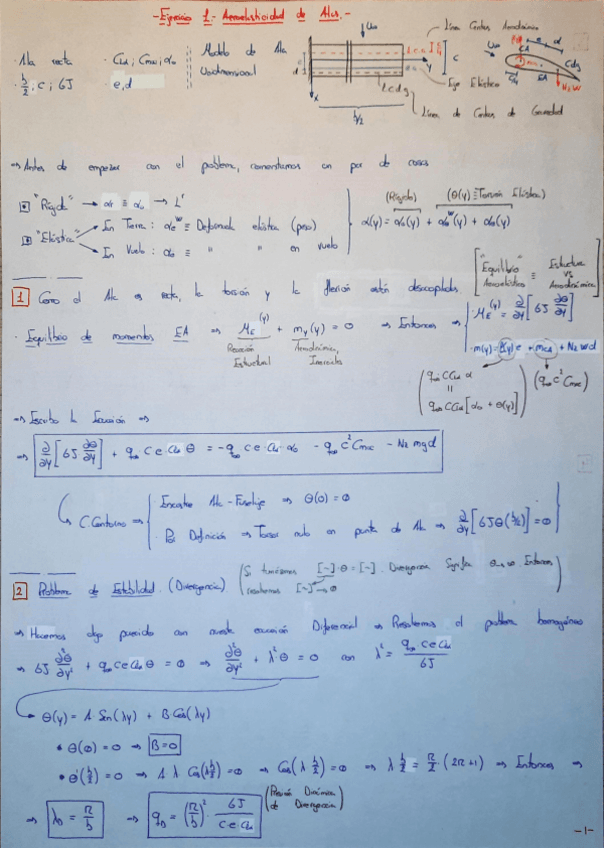 - Ejercicio 1 - Aeroelasticidad de Alas. -
· Ala recta · Clα ; Cmac ; α₀
· b/2 ; c ; GJ e, d
Modelo de Ala Unidimensional
Línea Centros Aerodinámicos
Eje Elástico
Línea de Centros de Gravedad
U∞
l.c.a.
l.c.d.g
b/2
c
y
x
U∞
CA
EA
Cdg
e
d
Nz W
⇒ Antes de empezar con el problema, comentamos un par de cosas
"Rígida" → αr ≡ α₀ → L'
"Elástica"
En Tierra : αe^w ≡ Deformada elástica (peso)
En Vuelo : αe ≡ " " en vuelo
(Rígido) (θ(y) ≡ Torsión Elástica)
α(y) = α₀(y) + αe^w(y) + αe(y)
["Equilibrio" Aeroelástico ≡ Estructura vs Aerodinámica]
1 Como el Ala es recta, la torsión y la flexión están desacopladas
· Equilibrio de momentos EA ⇒ M_E(y) + m_y(y) = 0 ⇒ Entonces ⇒
Reacción Estructural
Aerodinámica, Inerciales
· M_E(y) = ∂/∂y [GJ ∂θ/∂y]
· m(y) = l(y) e + m_CA + Nz w d
(q∞ c Clα α = q∞ c Clα [α₀ + θ(y)])
(q∞ c² Cmac)
⇒ Escribo la Ecuación ⇒
⇒ ∂/∂y [GJ ∂θ/∂y] + q∞ c e Clα θ = - q∞ c e Clα α₀ - q∞ c² Cmac - Nz mg d
C. Contorno ⇒
· Encastre Ala-Fuselaje ⇒ θ(0) = 0
· Por Definición ⇒ Torsor nulo en punta de Ala ⇒ ∂/∂y [GJ θ(b/2)] = 0
2 Problema de Estabilidad. (Divergencia)
(Si tuviésemos [~]·θ = [~]. Divergencia Significa θ → ∞. Entonces resolvemos [~] → 0)
⇒ Hacemos algo parecido con nuestra ecuación Diferencial ⇒ Resolvemos el problema homogéneo
⇒ GJ ∂²θ/∂y² + q∞ c e Clα θ = 0 ⇒ ∂²θ/∂y² + λ² θ = 0 con λ² = q∞ c e Clα / GJ
θ(y) = A Sen(λy) + B Cos(λy)
• θ(0) = 0 ⇒ B = 0
• θ'(b/2) = 0 ⇒ A λ Cos(λ b/2) = 0 ⇒ Cos(λ b/2) = 0 ⇒ λ b/2 = π/2 (2n+1) ⇒ Entonces ⇒
⇒ λ_D = π/b ⇒ q_D = (π/b)² · GJ / c e Clα (Presión Dinámica de Divergencia)
-1-